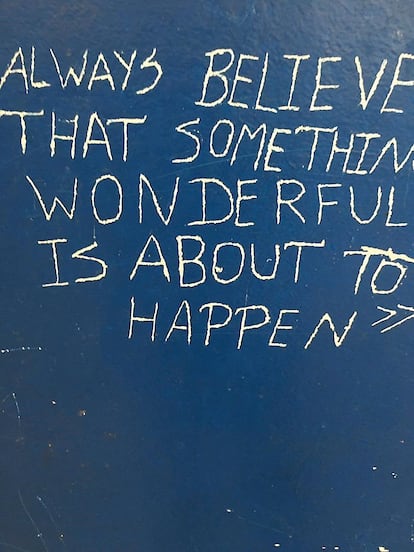 ALWAYS BELIEVE
THAT SOMETHIN
WONDERFUL
IS ABOUT TO
HAPPEN >>